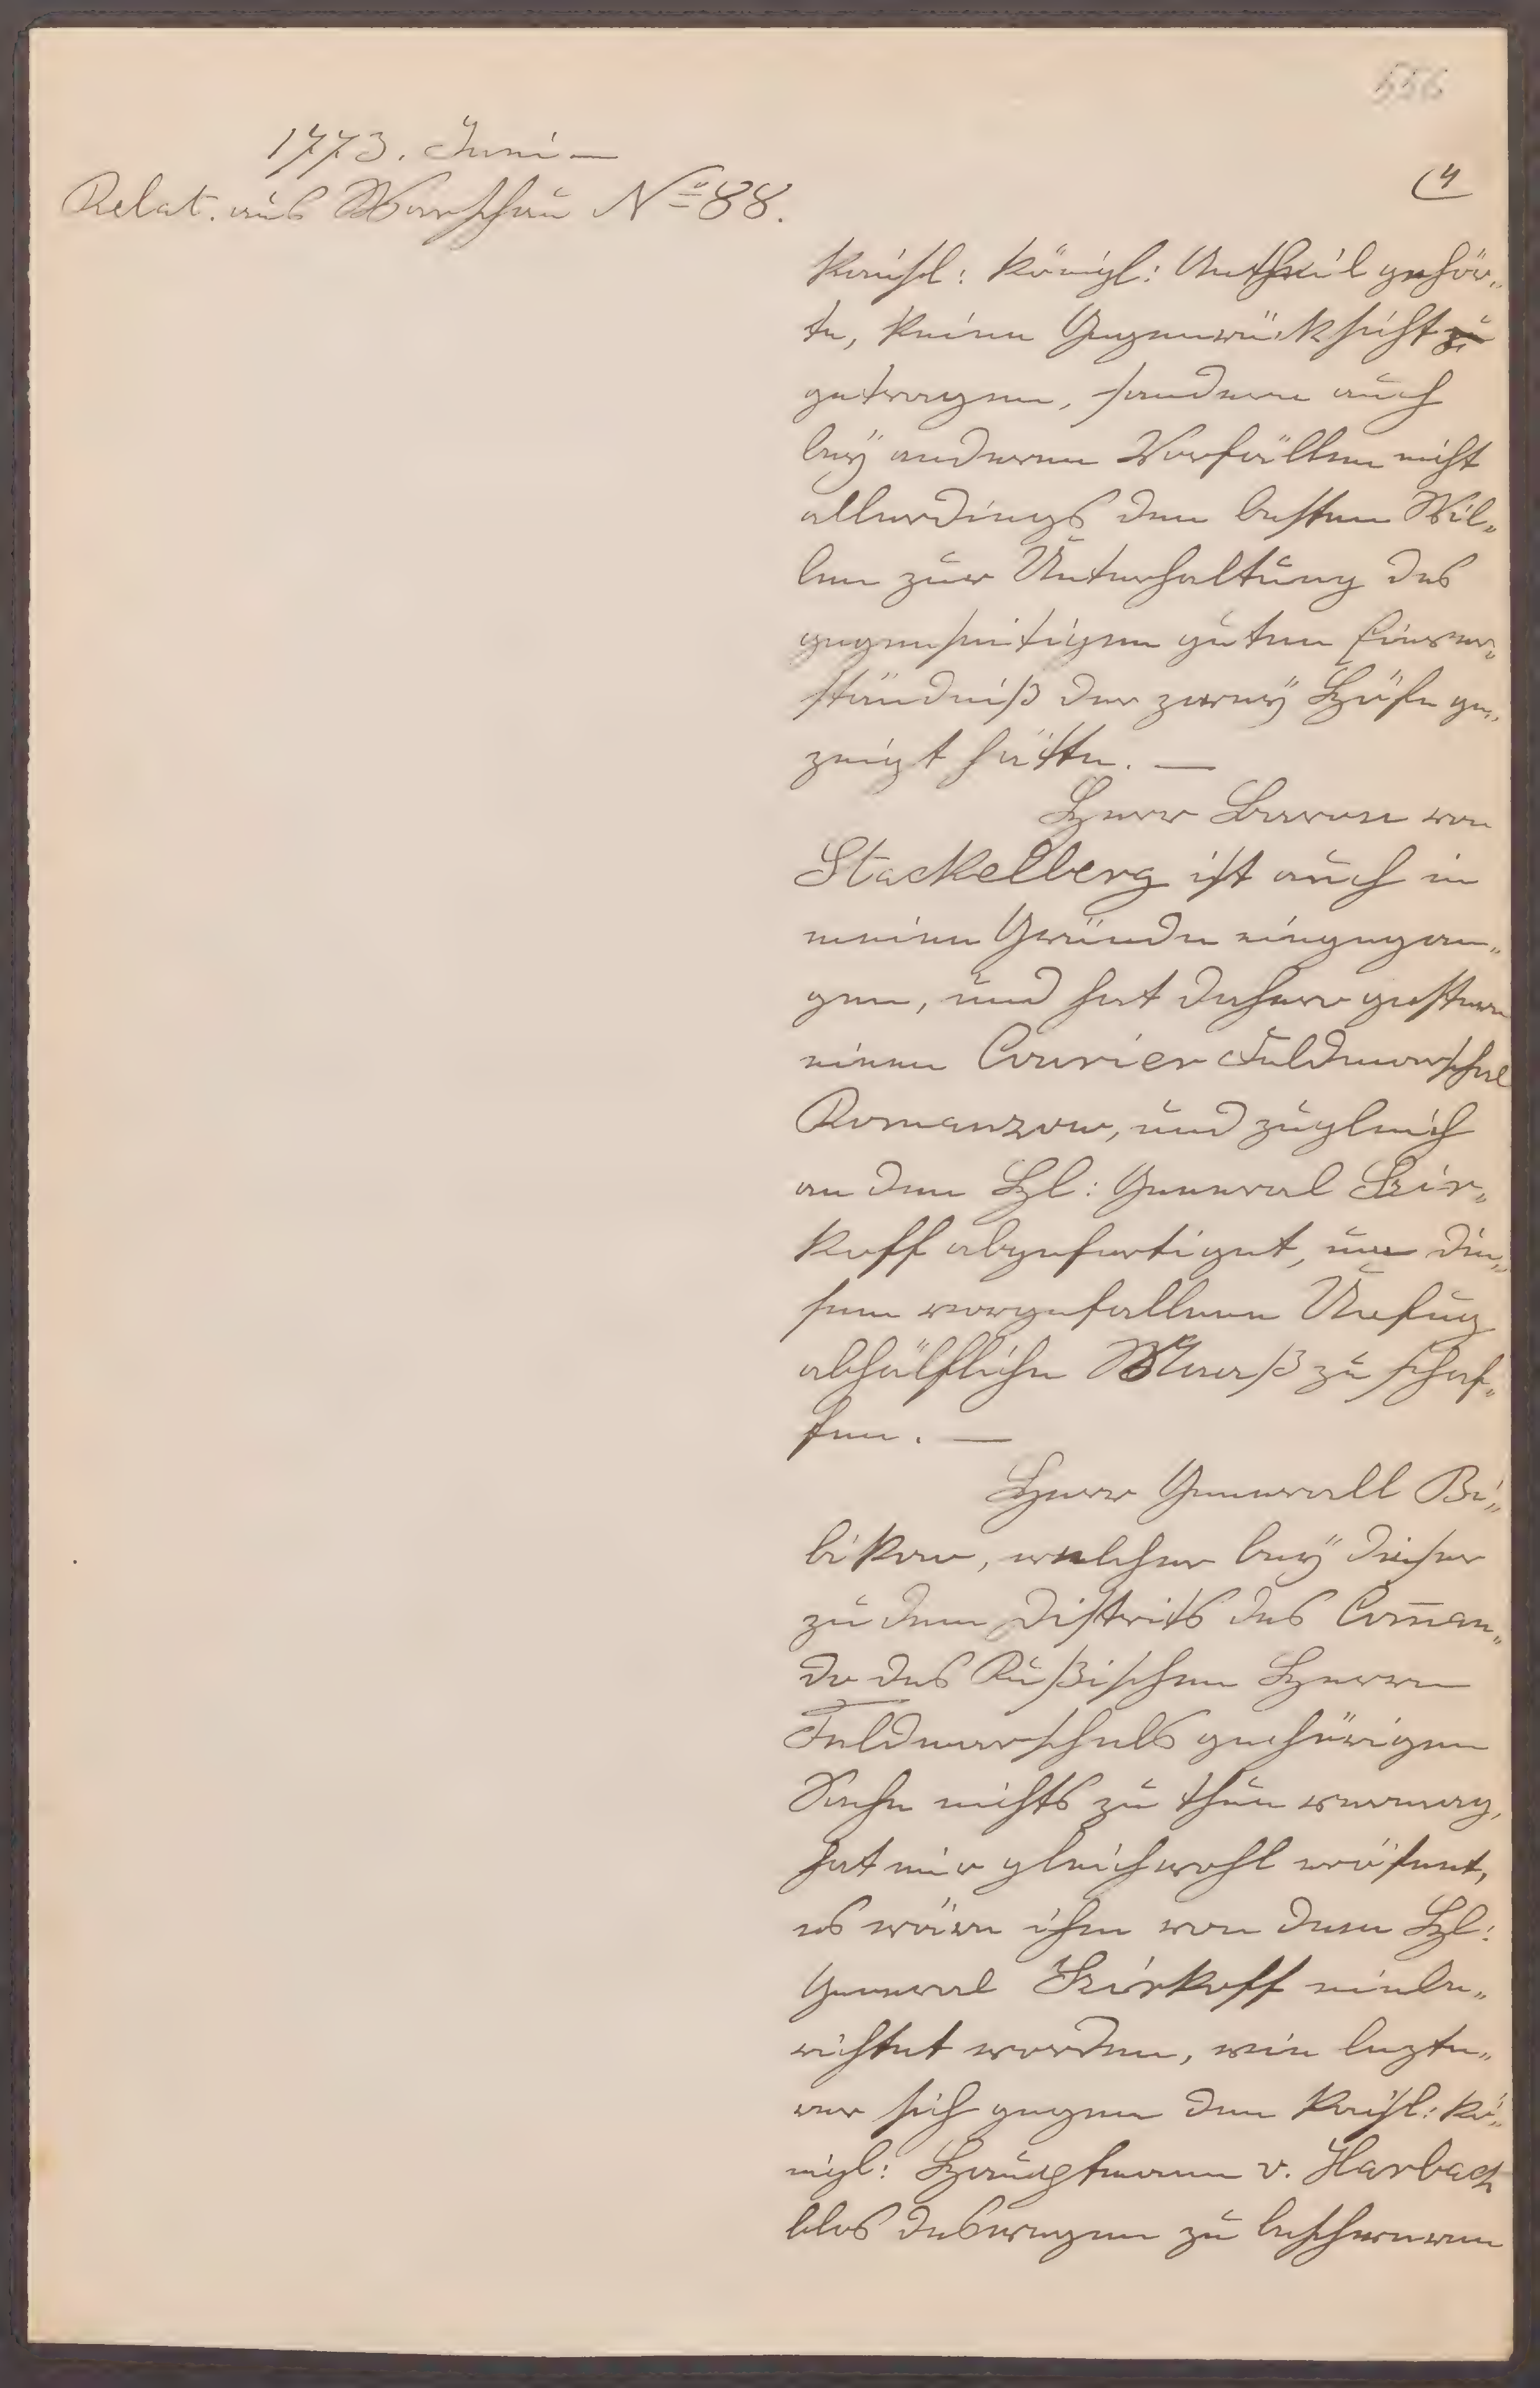 556
1773. Juni —
4
Relat. aus Warschau No 88.
Kaisl: Königl: Antheil gehör„
te, keine Gegenrücksicht
getragen, sondern auch
beÿ anderen Vorfällen nicht
allerdings den besten Wil„
len zur Unterhaltung des
gegenseitigen guten Einver„
ständniß der zweÿ Höfe ge„
zeigt hätte. —
Herr Baron von
Stackelberg ist auch in
meine Gründe eingegan„
gen, und hat daher gestern
einen Courier Feldmarschal
Romanzow, und zugleich
an den Hl: General Szir„
koff abgefertiget, um die„
sem vorgefallenen Unfug
abhülfliche Maaß zu schaf„
fen. —
Herr Generall Bi„
bikow, welcher beÿ dieser
zu dem Districts des Com̄an„
do des Rußischen Herrn
Feldmarschals gehörigen
Sache nichts zu thun vermag,
hat mir gleichwohl eröfnet,
es wäre ihm von dem Hl:
General Szirkoff einbe„
richtet worden, wie lezte„
rer sich gegen den Kaisl: Kö„
nigl: Hauptmann v. Harbach
blos deswegen zu beschweren